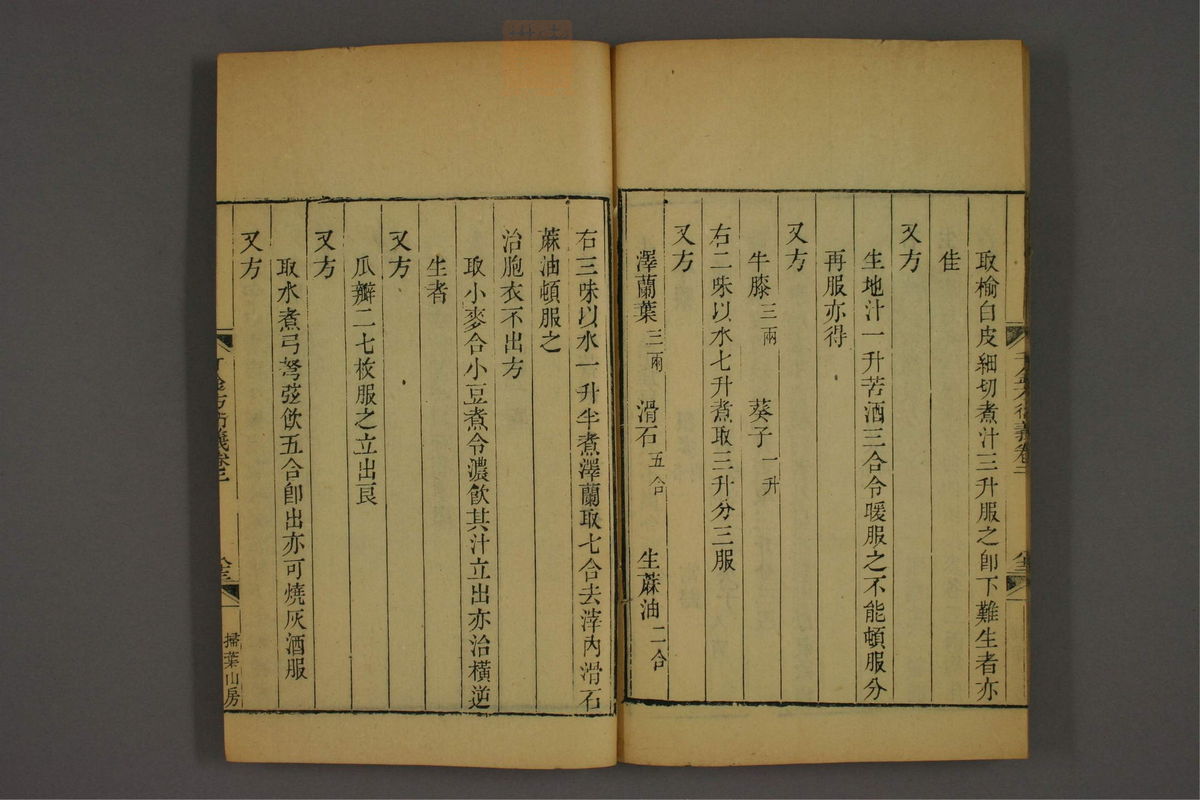 取榆白皮細切煮汁三升服之卽下難生者亦
佳
又方
生地汁一升苦酒三合令暖服之不能頓服分
再服亦得
又方
牛膝三兩 葵子一升
右二味以水七升煮取三升分三服
又方
澤蘭葉三兩 滑石五合 生蔴油二合
右三味以水一升半煮澤蘭取七合去滓內滑石
蔴油頓服之
治胞衣不出方
取小麥合小豆煮令濃飮其汁立出亦治橫逆
生者
又方
瓜瓣二七枚服之立出良
又方
取水煮弓弩弦飮五合卽出亦可燒灰酒服
又方
掃葉山房